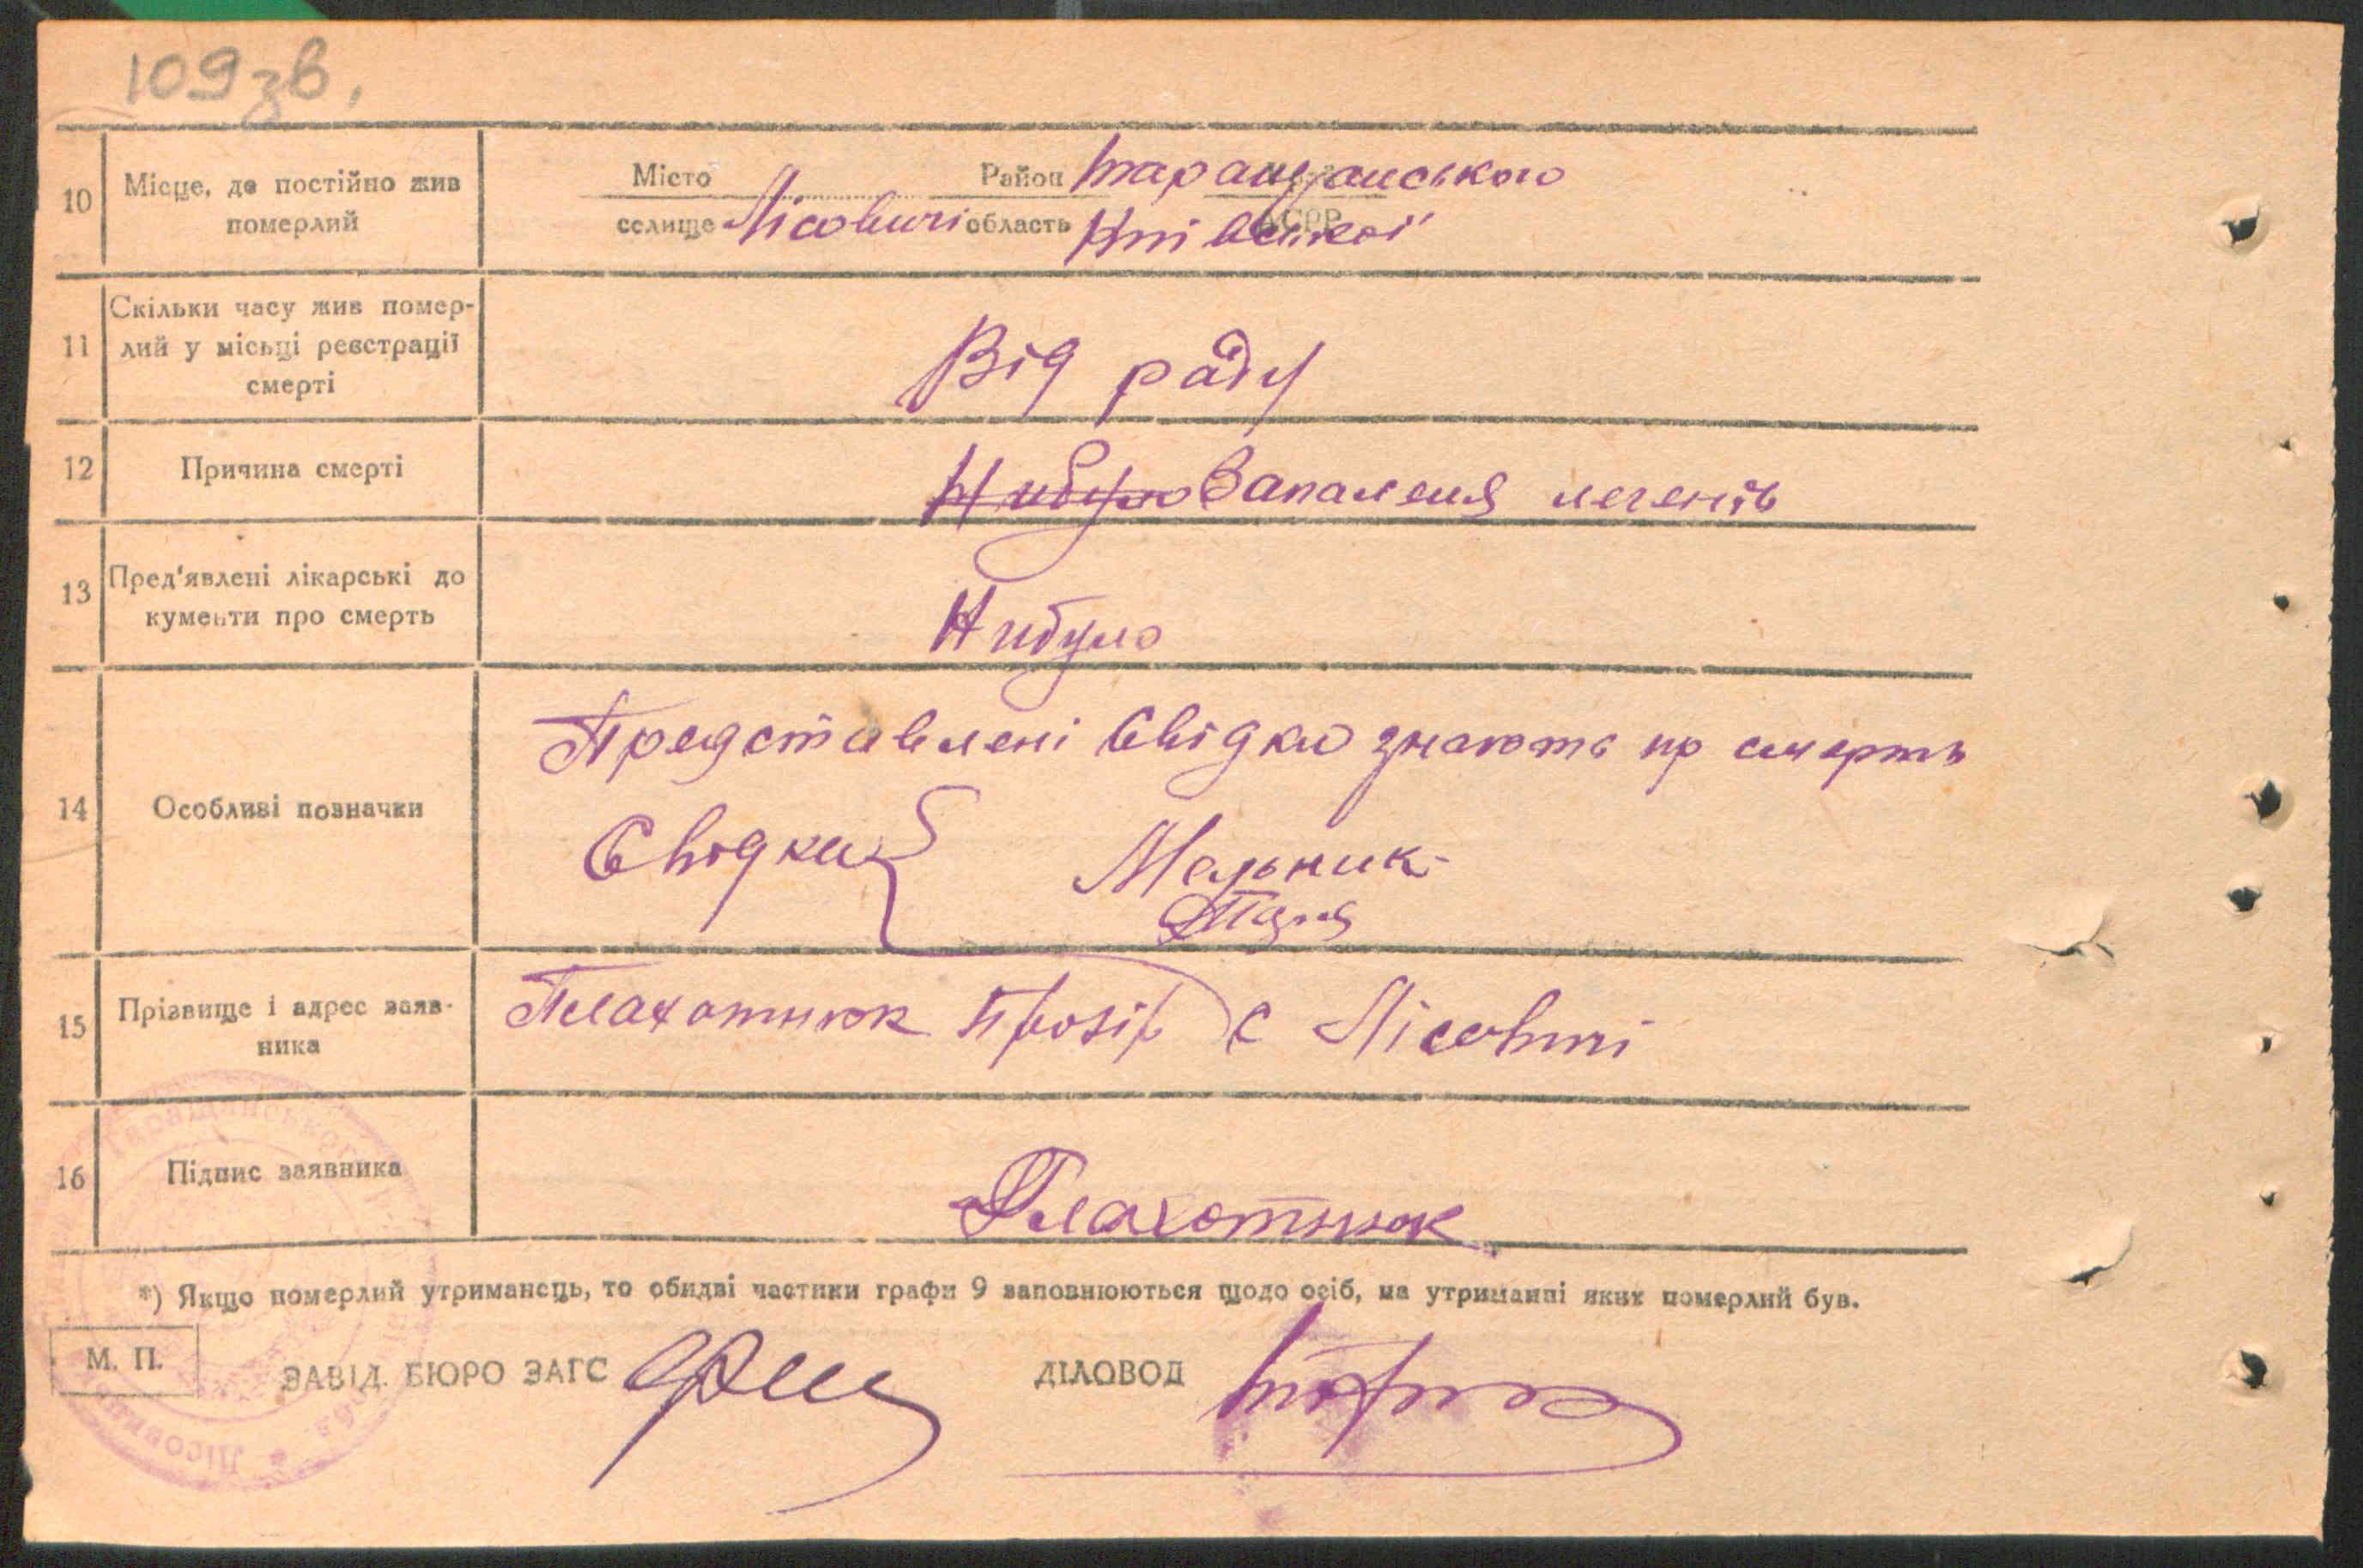 109 зв.
10 Місце, де постійно жив померлий
Місто Район Таращанського
селище Лісовичі область АСРР Київської
11 Скільки часу жив помер-
лий у місьці реєстрації
смерті
Від раду
12 Причина смерті
Нибуло Запаленя легенів
13 Пред'явлені лікарські до
кументи про смерть
Нибуло
14 Особливі позначки
Представлені свідки знають пр смерть
Свідки Мельник
15 Прізвище і адрес заяв-
ника
Плахотнюк Прозір с Лісовичі
16 Підпис заявника
Плахотнюк
*) Якщо померлий утриманець, то обидві частини графи 9 заповнюються щодо осіб, на утриманні яких померлий був.
М. П.
ЗАВІД. БЮРО ЗАГС ДІЛОВОД